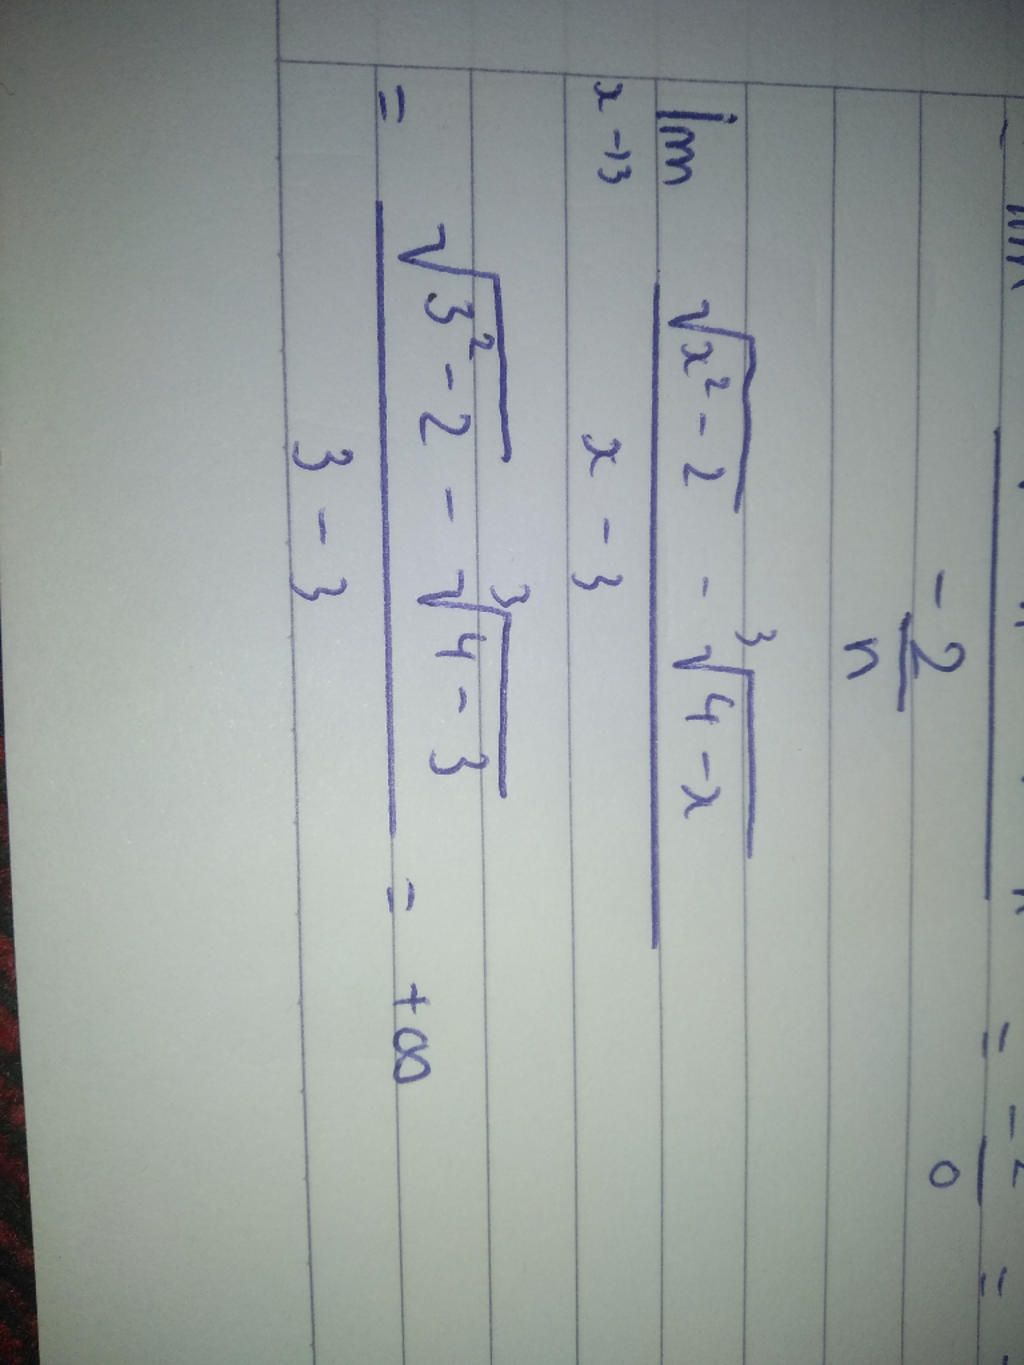 - 2/n
= - 2/0 =
lim x→3 (√(x² - 2) - ³√(4 - x)) / (x - 3)
= (√(3² - 2) - ³√(4 - 3)) / (3 - 3) = +∞